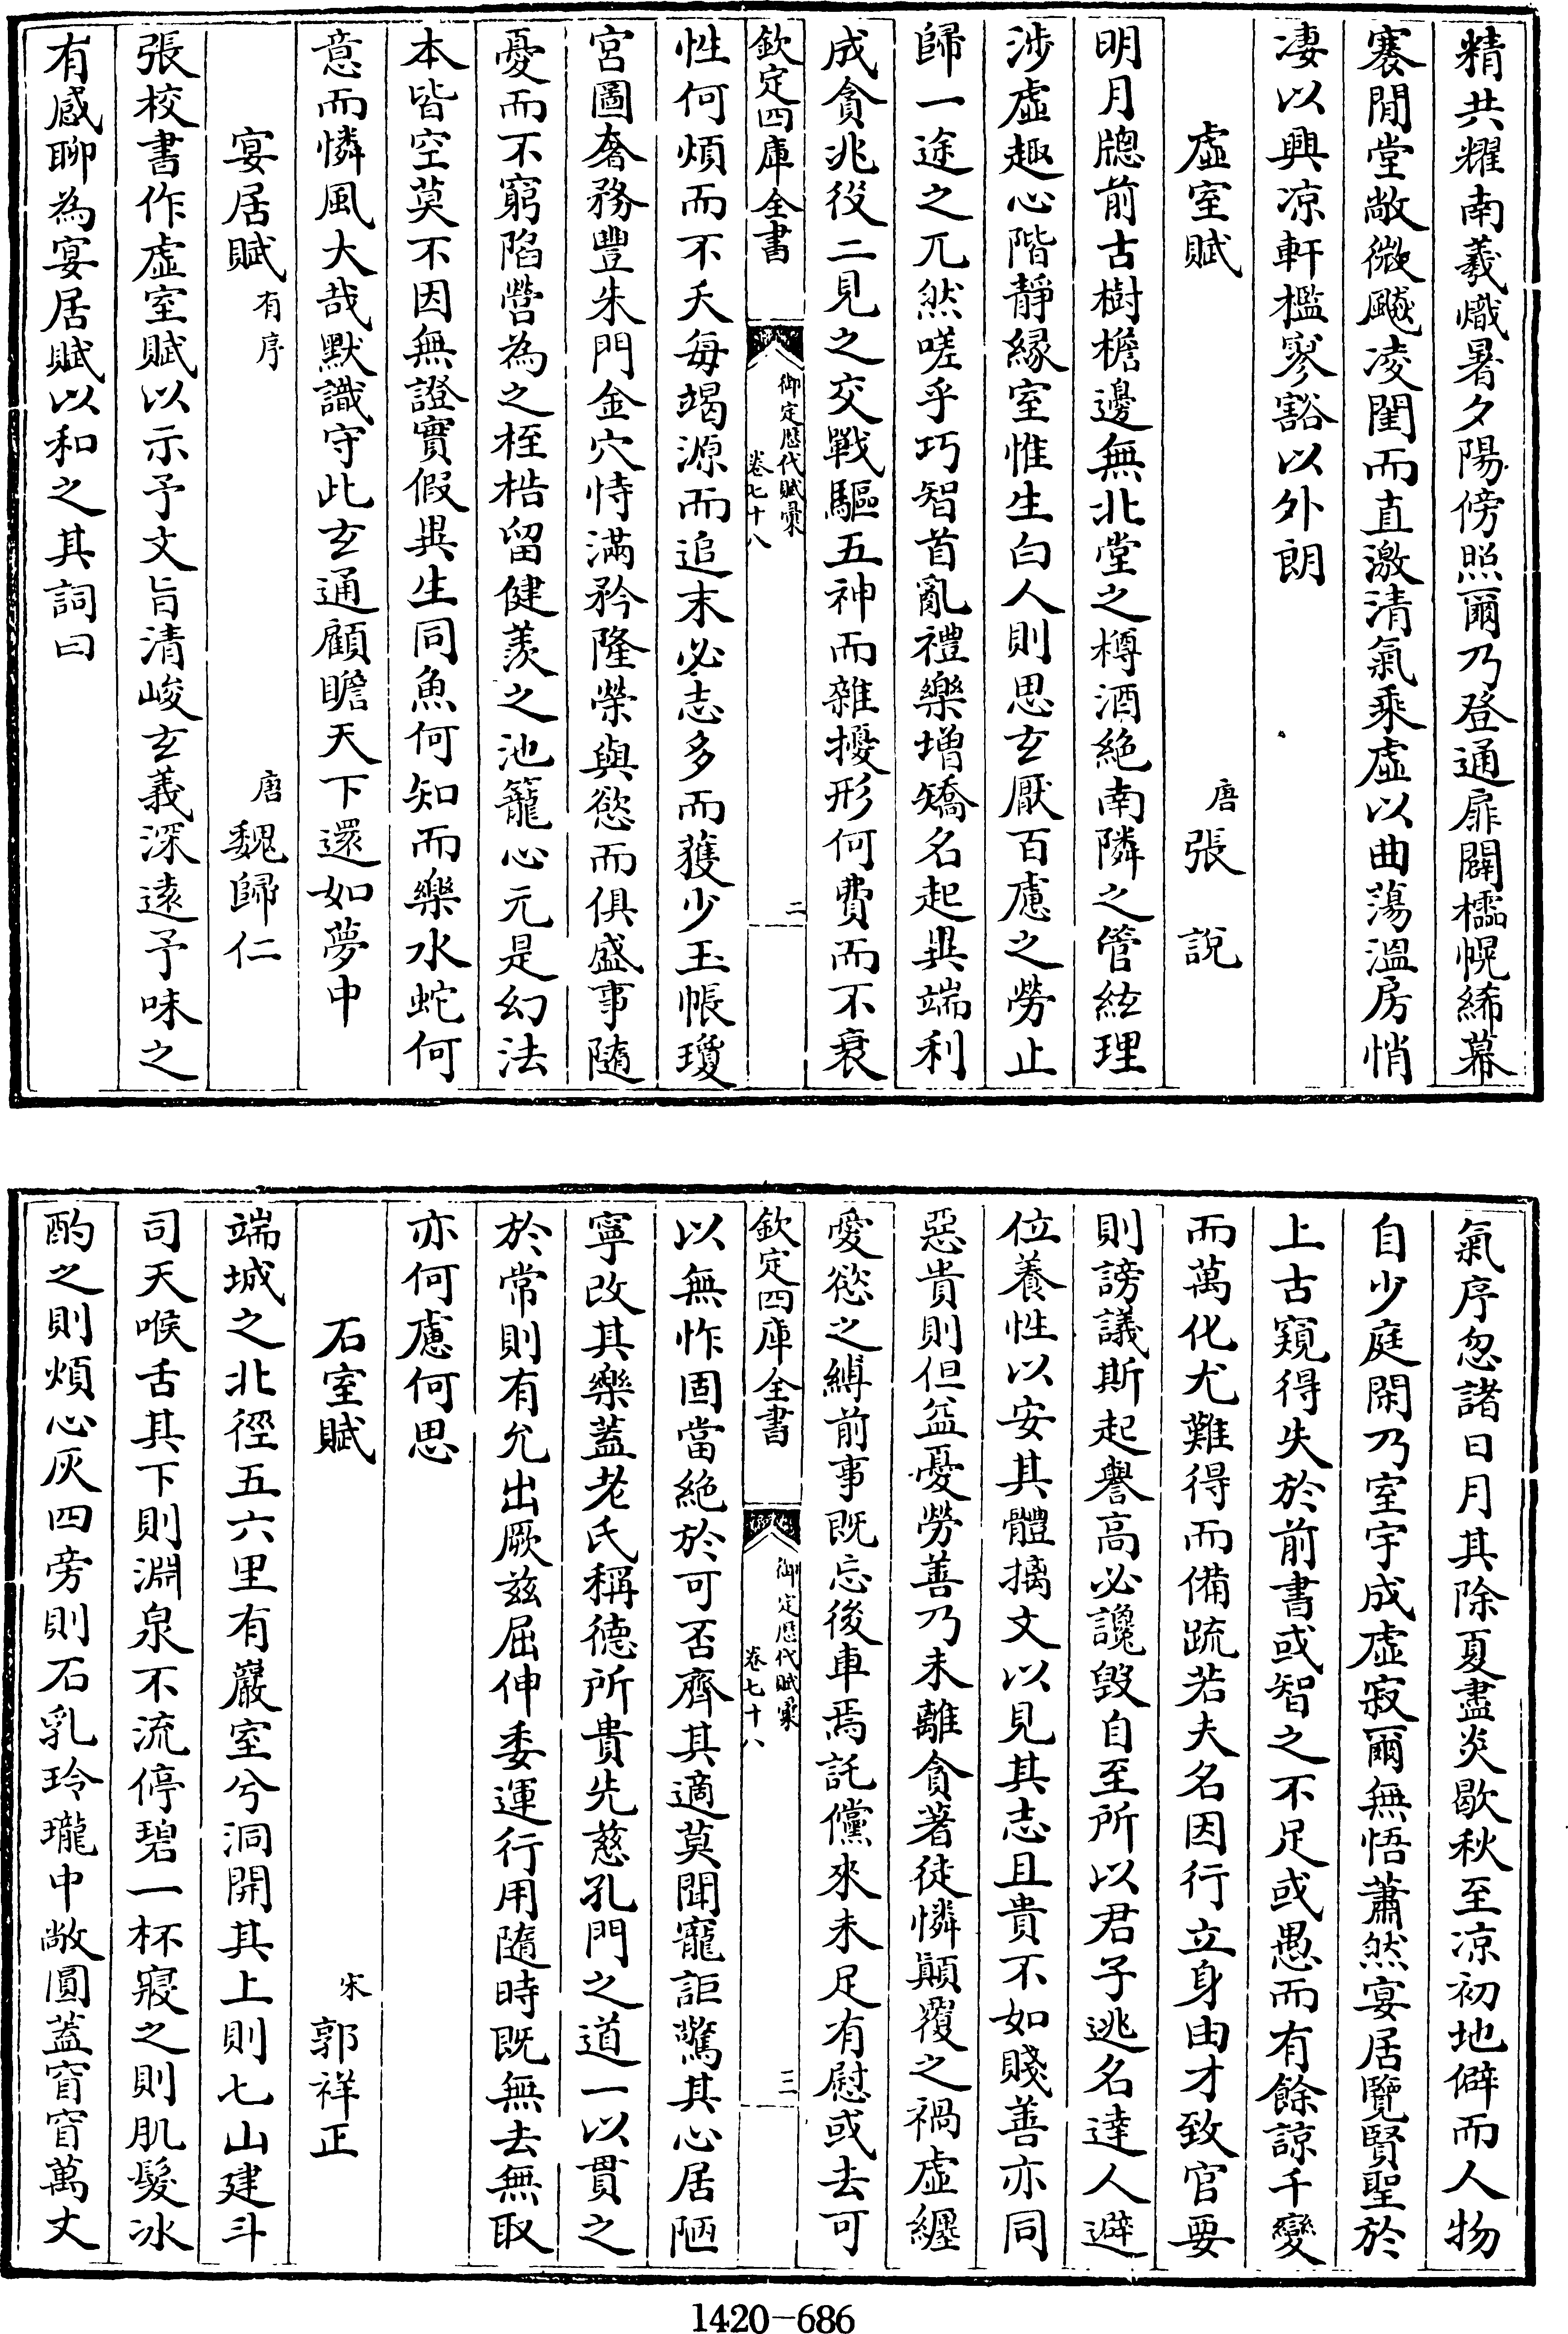 精共耀南羲熾暑夕陽傍照爾乃登通扉闢櫺幌絺幕
褰閒堂敞微飈凌閨而直激清氣乘虛以曲蕩溫房悄
凄以興凉軒檻寥豁以外朗
虛室賦 唐 張說
明月牕前古樹檐邊無北堂之樽酒絶南隣之管絃理
涉虛趣心階靜緣室惟生白人則思玄厭百慮之勞止
歸一途之兀然嗟乎巧智首亂禮樂增矯名起異端利
成貪兆役二見之交戰驅五神而雜擾形何費而不衰
欽定四庫全書 御定歷代賦彙 卷七十八 二
性何煩而不夭每竭源而追末必志多而獲少玉帳瓊
宮圖奢務豐朱門金穴恃滿矜隆榮與慾而俱盛事隨
憂而不窮陷營為之桎梏留健羨之池籠心元是幻法
本皆空莫不因無證實假異生同魚何知而樂水蛇何
意而憐風大哉默識守此玄通顧瞻天下還如夢中
宴居賦 有序 唐 魏歸仁
張校書作虛室賦以示予文旨清峻玄義深遠予味之
有感聊為宴居賦以和之其詞曰
氣序忽諸日月其除夏盡炎歇秋至凉初地僻而人物
自少庭閑乃室宇成虛寂爾無悟蕭然宴居覽賢聖於
上古窺得失於前書或智之不足或愚而有餘諒千變
而萬化尤難得而備疏若夫名因行立身由才致官要
則謗議斯起譽高必讒毁自至所以君子逃名達人避
位養性以安其體摛文以見其志且貴不如賤善亦同
惡貴則但益憂勞善乃未離貪著徒憐顛覆之禍虛纏
愛慾之縛前事既忘後車焉託儻來未足有慰或去可
欽定四庫全書 御定歷代賦彙 卷七十八 三
以無怍固當絶於可否齊其適莫聞寵詎驚其心居陋
寧改其樂蓋老氏稱德所貴先慈孔門之道一以貫之
於常則有允出厥兹屈伸委運行用隨時既無去無取
亦何慮何思
石室賦 宋 郭祥正
端城之北徑五六里有巖室兮洞開其上則七山建斗
司天喉舌其下則淵泉不流停碧一杯寢之則肌髮冰
酌之則煩心灰四旁則石乳玲瓏中敞圓蓋窅窅萬丈
1420-686